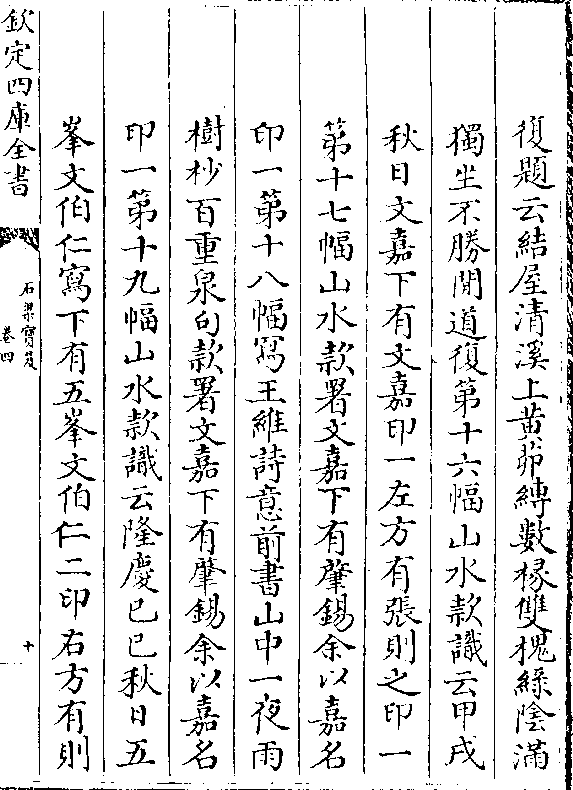 復題云結屋清溪上黄茆縳數椽雙槐緑陰滿
獨坐不勝閒道復第十六幅山水款識云甲戌
秋日文嘉下有文嘉印一左方有張則之印一
第十七幅山水款署文嘉下有肇錫余以嘉名
印一第十八幅寫王維詩意前書山中一夜雨
樹杪百重泉句款署文嘉下有肇錫余以嘉名
印一第十九幅山水款識云隆慶己巳秋日五
峯文伯仁寫下有五峯文伯仁二印右方有則
欽定四庫全書
石渠寶笈
卷四
十